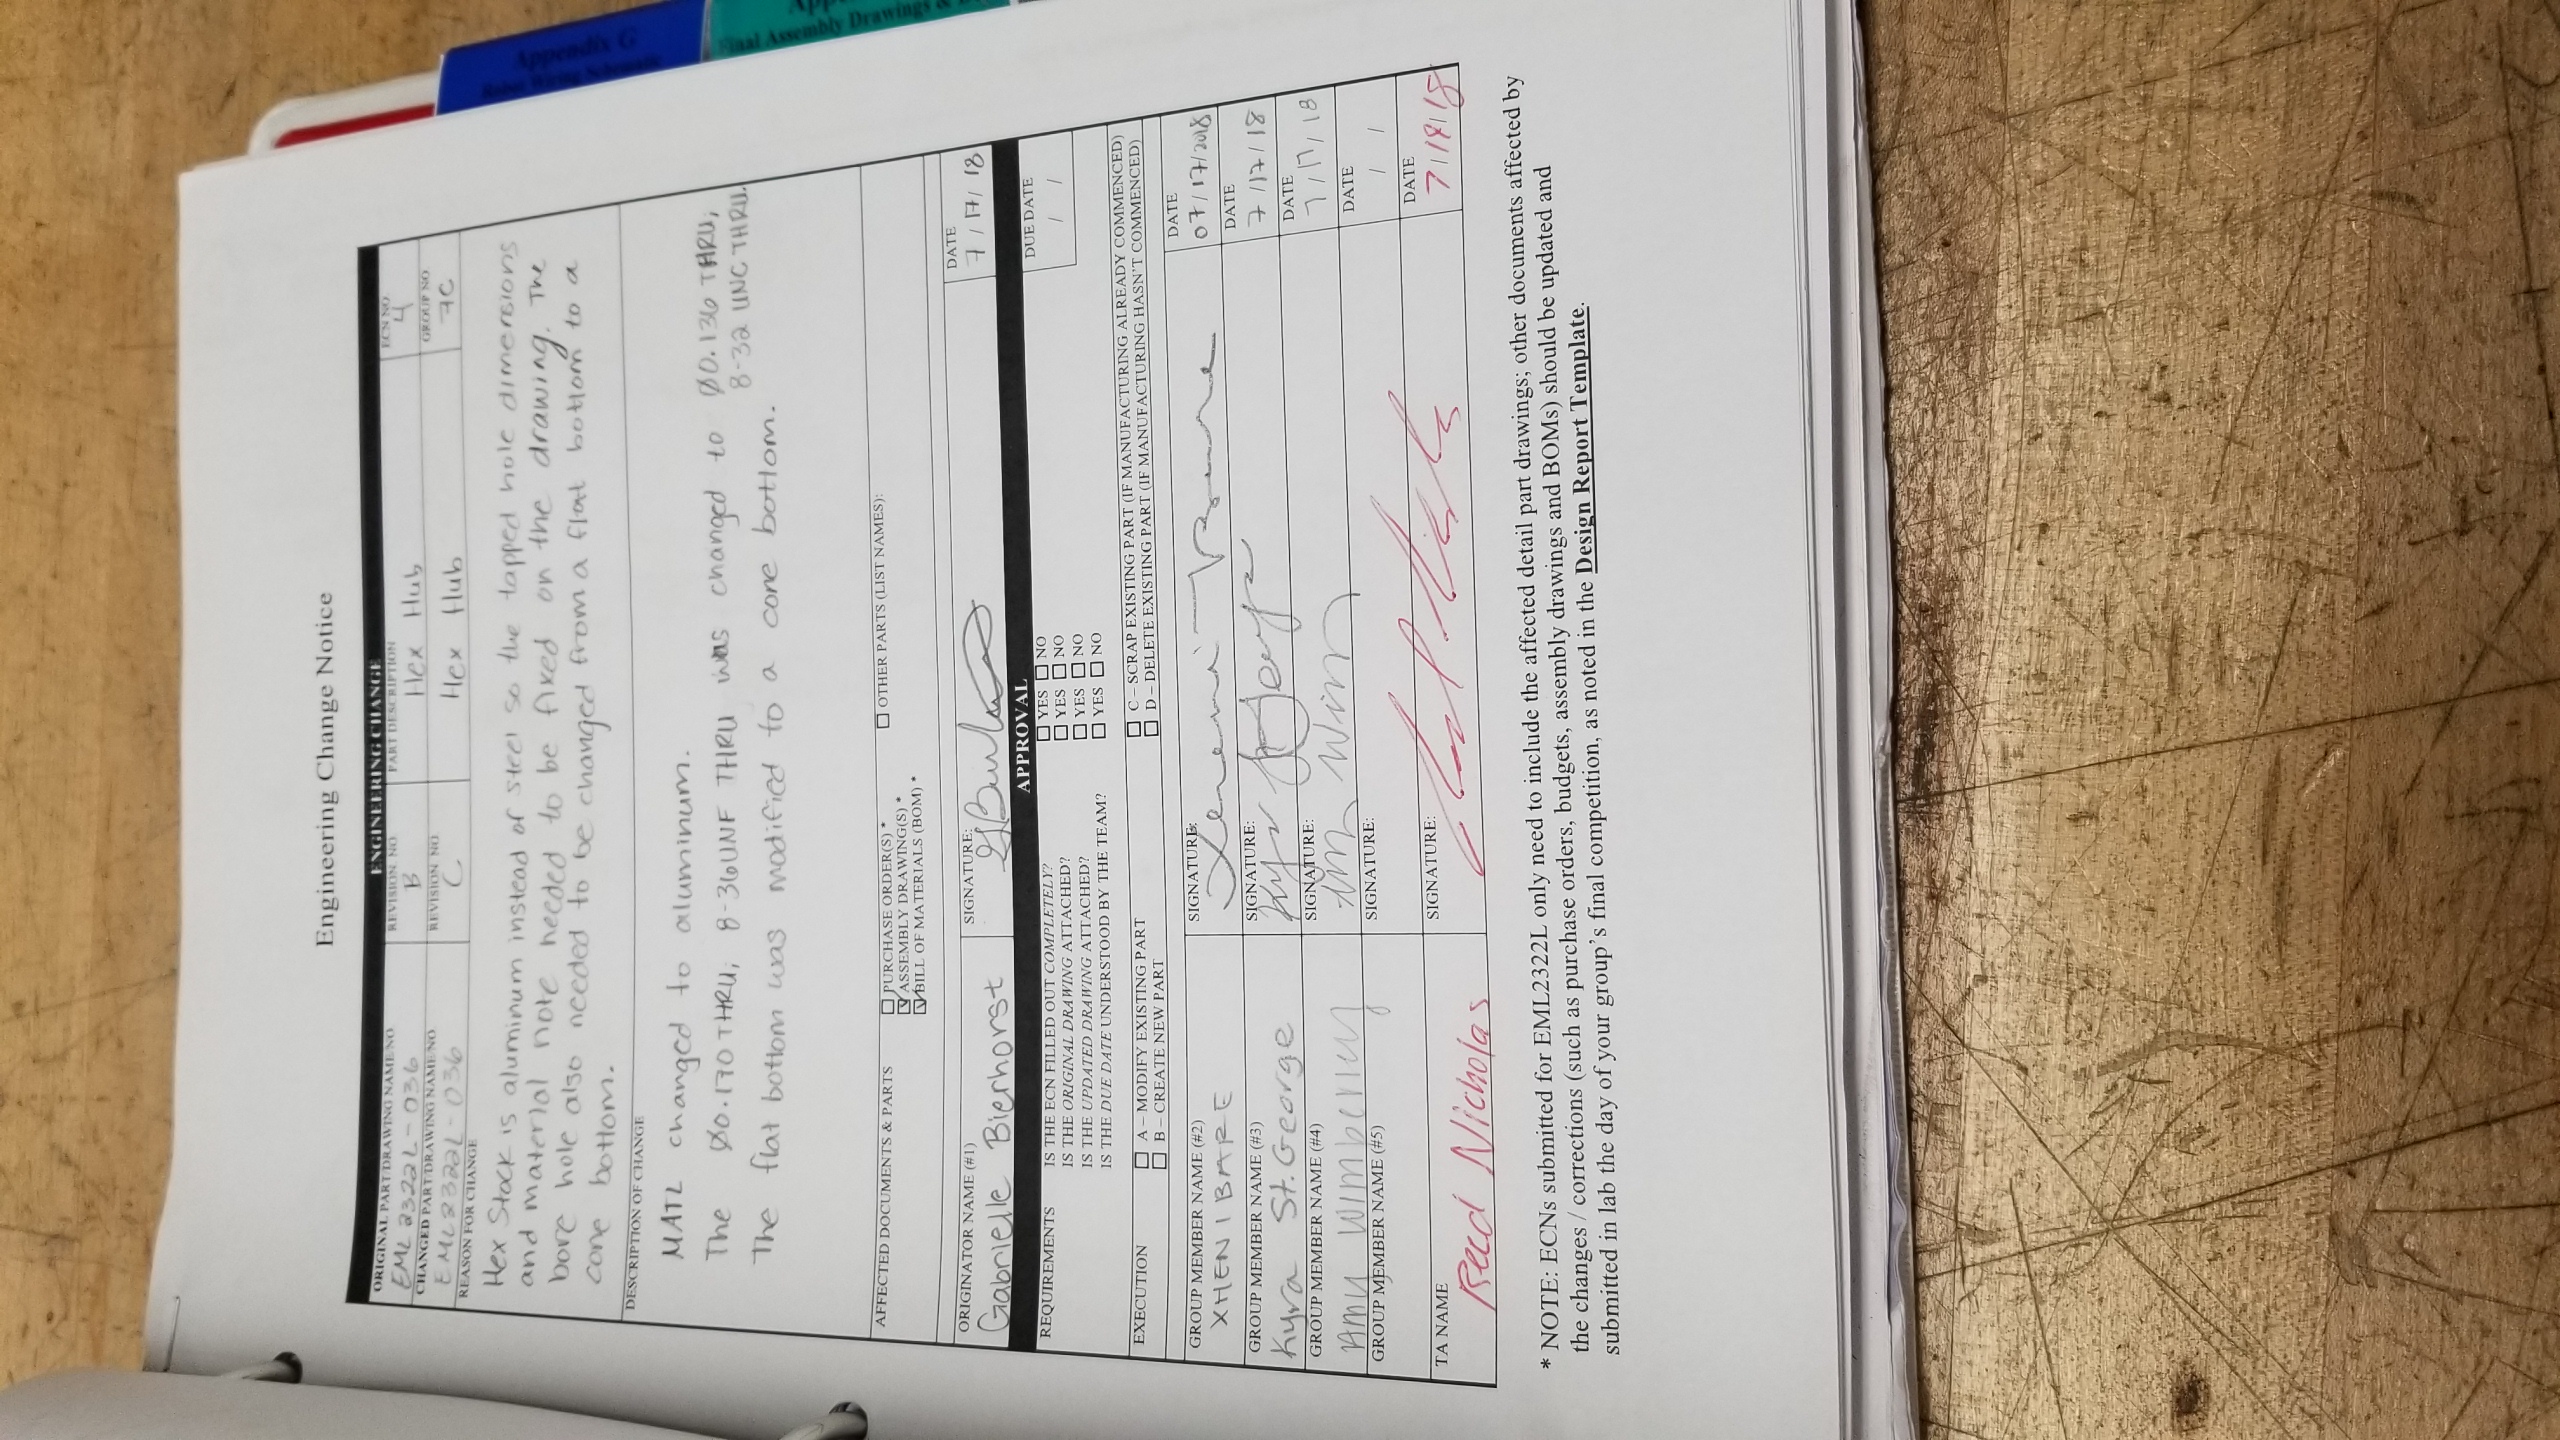 Engineering Change Notice
ENGINEERING CHANGE
ORIGINAL PART/DRAWING NAME/NO.
EML2322L-036
REVISION NO.
B
PART DESCRIPTION
Hex Hub
ECN NO.
4
CHANGED PART/DRAWING NAME/NO.
EML2322L-036
REVISION NO.
C
Hex Hub
GROUP NO.
7C
REASON FOR CHANGE
Hex Stock is aluminum instead of steel so the tapped hole dimensions
and material note needed to be fixed on the drawing. The
bore hole also needed to be changed from a flat bottom to a
cone bottom.
DESCRIPTION OF CHANGE
MATL changed to aluminum.
The Ø0.170 THRU; 8-36UNF THRU was changed to Ø0.136 THRU;
8-32 UNC THRU.
The flat bottom was modified to a cone bottom.
AFFECTED DOCUMENTS & PARTS
☐ PURCHASE ORDER(S) *
☑ ASSEMBLY DRAWING(S) *
☑ BILL OF MATERIALS (BOM) *
☐ OTHER PARTS (LIST NAMES):
ORIGINATOR NAME (#1)
Gabrielle Bierhorst
SIGNATURE:
DATE
7/17/18
APPROVAL
REQUIREMENTS
IS THE ECN FILLED OUT COMPLETELY? ☐ YES ☐ NO
IS THE ORIGINAL DRAWING ATTACHED? ☐ YES ☐ NO
IS THE UPDATED DRAWING ATTACHED? ☐ YES ☐ NO
IS THE DUE DATE UNDERSTOOD BY THE TEAM? ☐ YES ☐ NO
DUE DATE
/ /
EXECUTION
☐ A – MODIFY EXISTING PART
☐ B – CREATE NEW PART
☐ C – SCRAP EXISTING PART (IF MANUFACTURING ALREADY COMMENCED)
☐ D – DELETE EXISTING PART (IF MANUFACTURING HASN'T COMMENCED)
GROUP MEMBER NAME (#2)
XHENI BARE
SIGNATURE:
DATE
07/17/2018
GROUP MEMBER NAME (#3)
Kyra St.George
SIGNATURE:
DATE
7/17/18
GROUP MEMBER NAME (#4)
Amy Wimberley
SIGNATURE:
DATE
7/17/18
GROUP MEMBER NAME (#5)
SIGNATURE:
DATE
/ /
TA NAME
Reed Nicholas
SIGNATURE:
DATE
7/18/18
* NOTE: ECNs submitted for EML2322L only need to include the affected detail part drawings; other documents affected by
the changes / corrections (such as purchase orders, budgets, assembly drawings and BOMs) should be updated and
submitted in lab the day of your group's final competition, as noted in the Design Report Template.
Appendix G